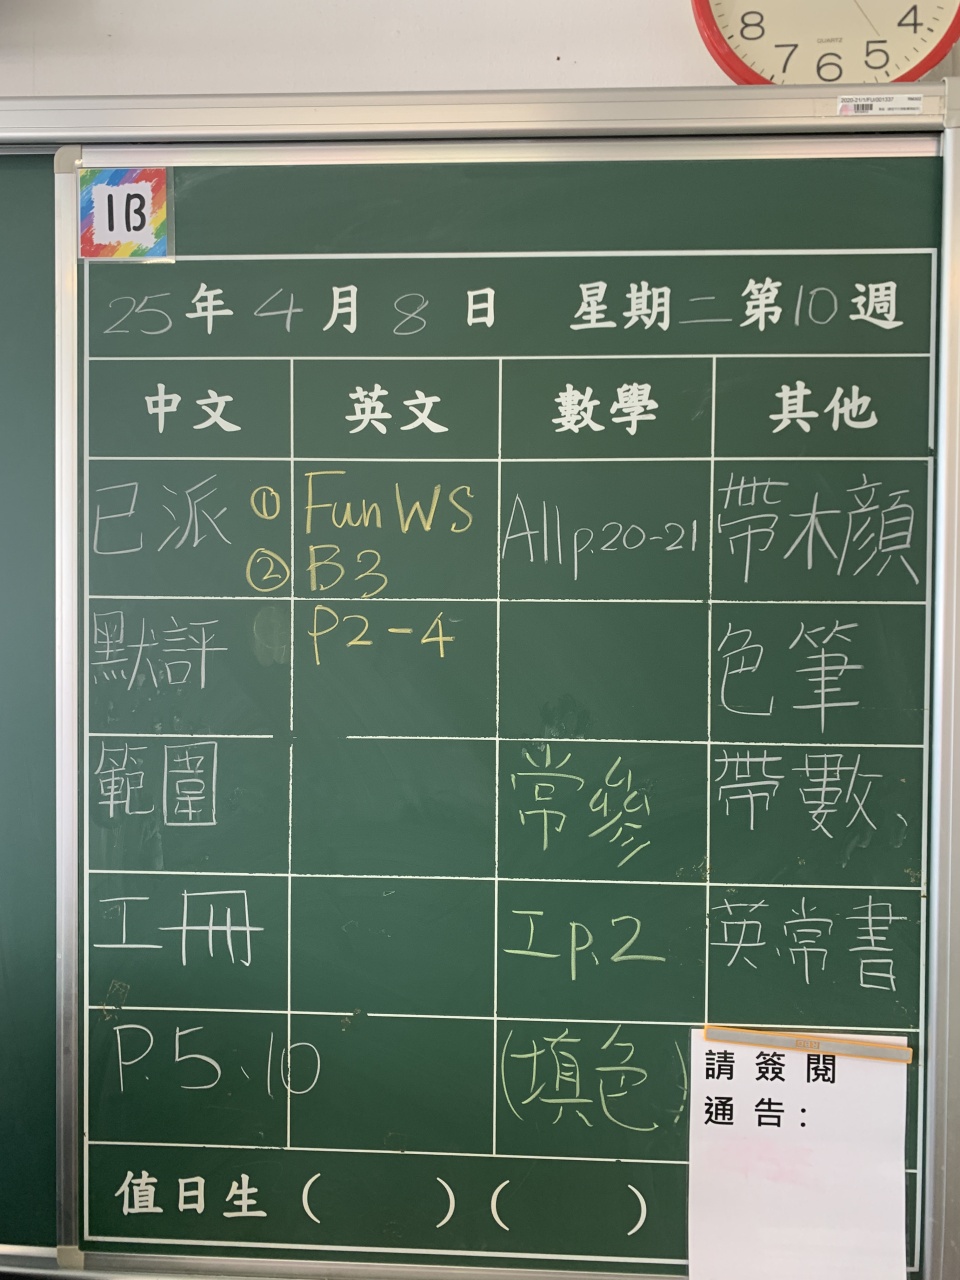 8 7 6 5 4
QUARTZ
1B
25年4月8日 星期二第10週
中文 英文 數學 其他
已派
默評
範圍
工冊
P.5、10
① Fun WS
② B3
P2-4
A11 p.20-21
常參
工p.2
(填色)
帶木顏
色筆
帶數、
英、常書
請簽閱
通告:
值日生( )( )